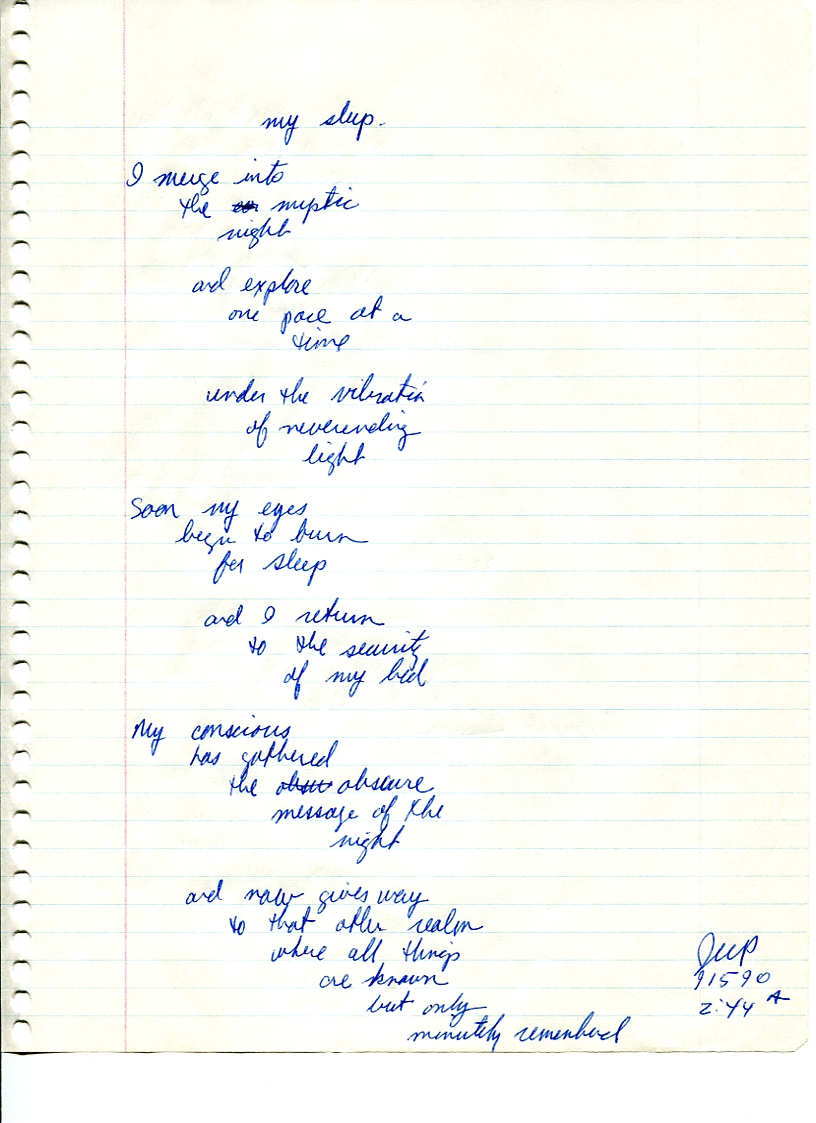 my sleep.
I merge into
the mystic
night
and explore
one pace at a
time
under the vibration
of neverending
light
Soon my eyes
begin to burn
for sleep
and I return
to the security
of my bed
My conscious
has gathered
the obscure
message of the
night
and now gives way
to that other realm
where all things
are known
but only
minutely remembered
91590
2:44 A